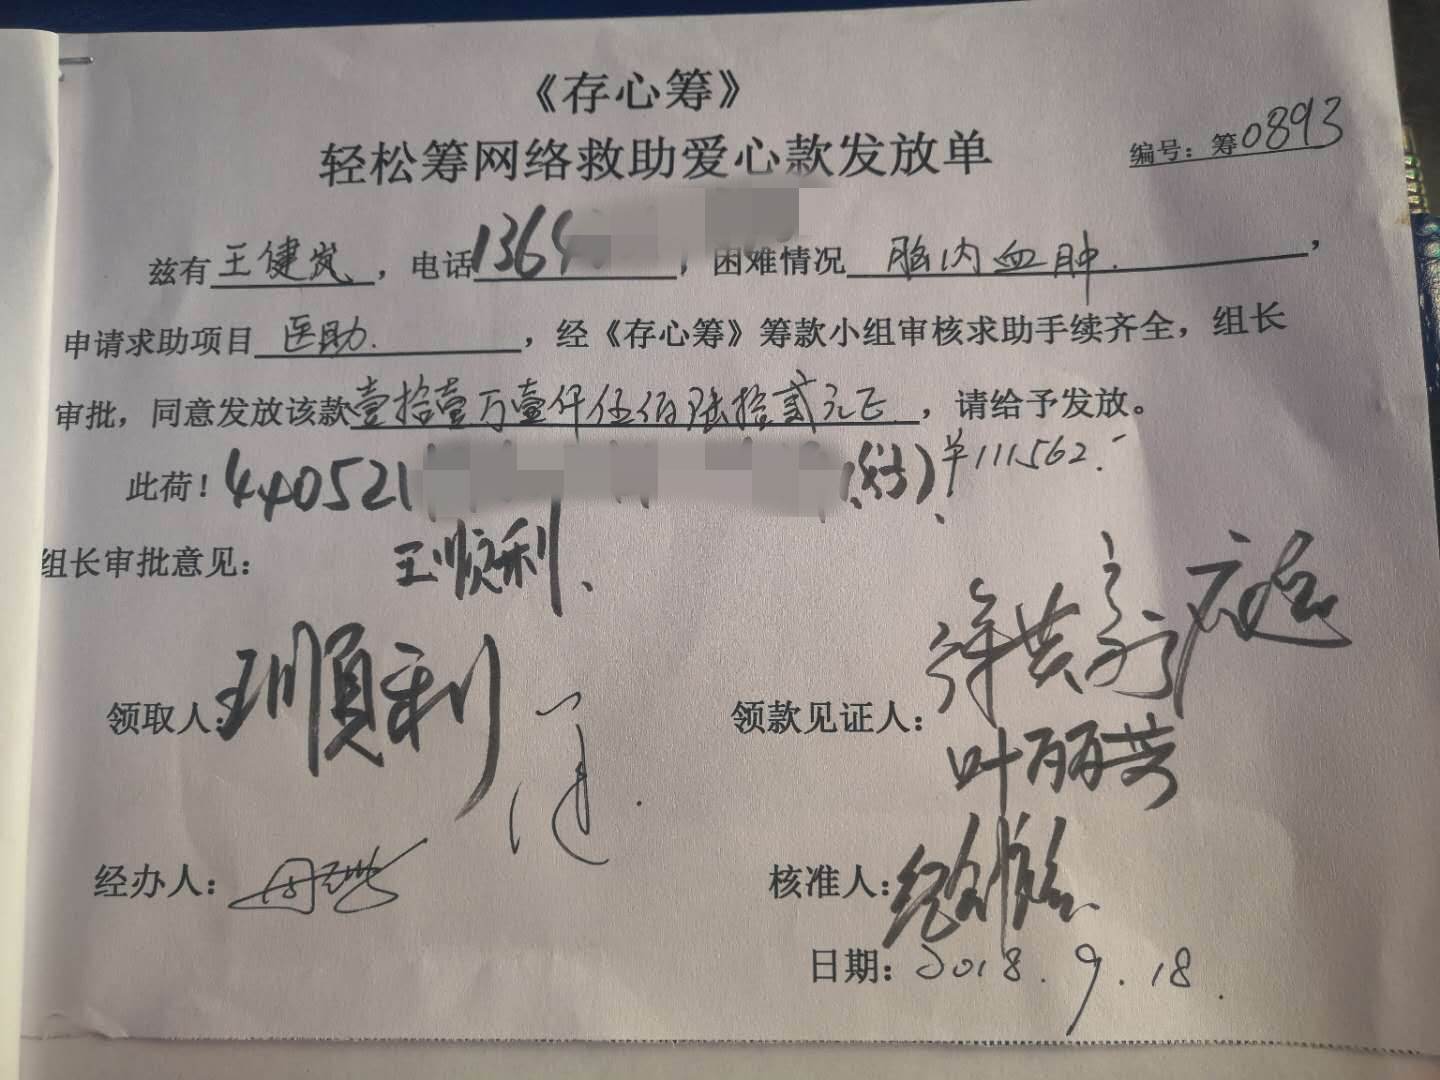 《存心筹》
轻松筹网络救助爱心款发放单
编号：筹0893
兹有王健岚，电话1364，困难情况脑内血肿.，
申请求助项目医助.，经《存心筹》筹款小组审核求助手续齐全，组长
审批，同意发放该款壹拾壹万壹仟伍佰陆拾贰元正，请给予发放。
此荷！440521 ￥111562.-
组长审批意见： 王顺利、
领取人：王順利 领款见证人：
叶丽芳
经办人： 核准人：
日期：2018.9.18.